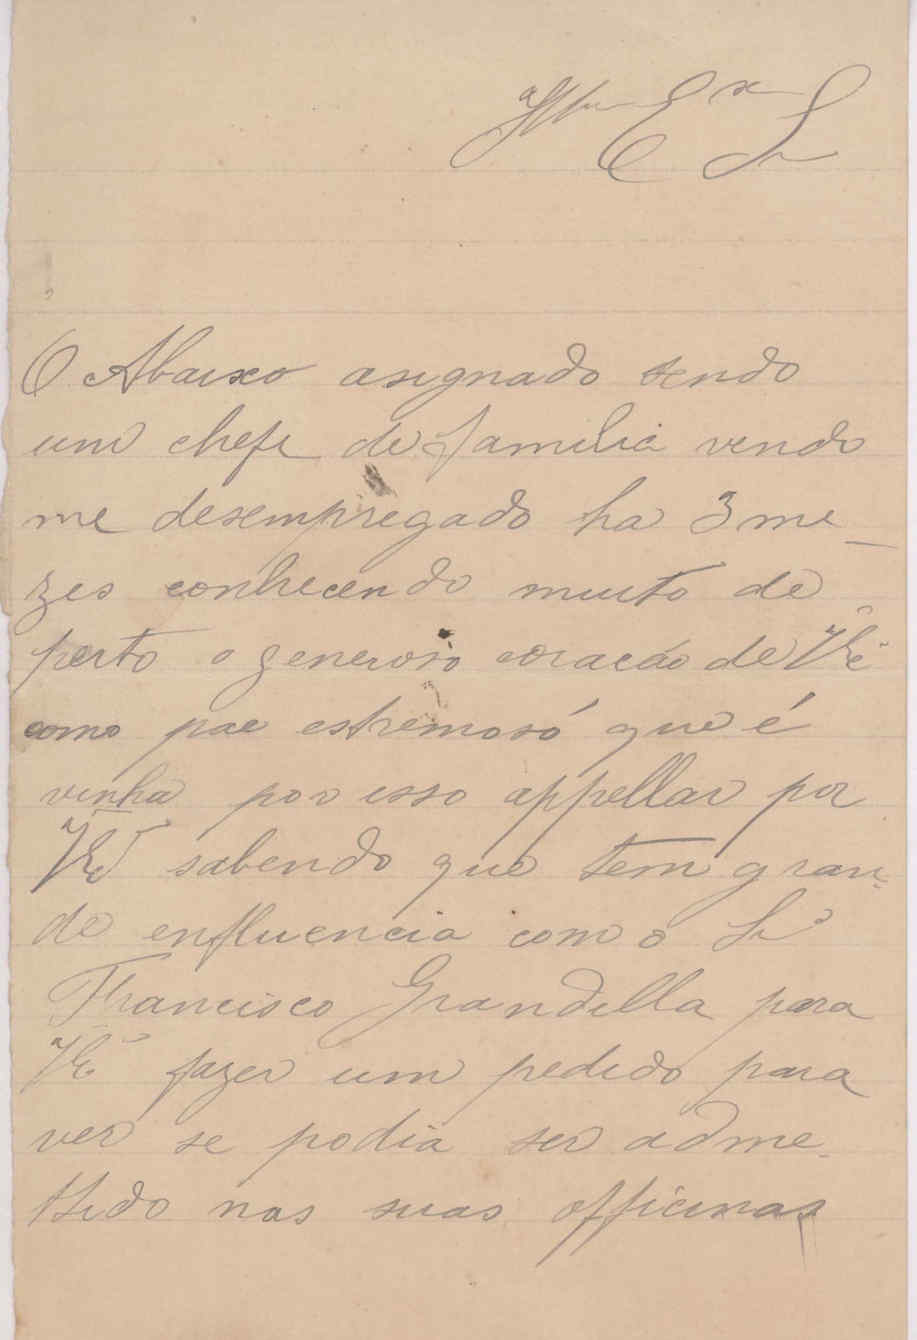 Illmo Ex Sr
O Abaixo asignado sendo
um chefe de familia vendo
me desempregado ha 3 me
zes conhecendo muito de
perto o generoso coracão de VEx
como pae estremosó que é
vinha por isso appellar por
VEx sabendo que tem gran-
de enfluencia com o Sr
Francisco Grandella para
VEx fazer um pedido para
ver se podia ser adme-
ttido nas suas officinas